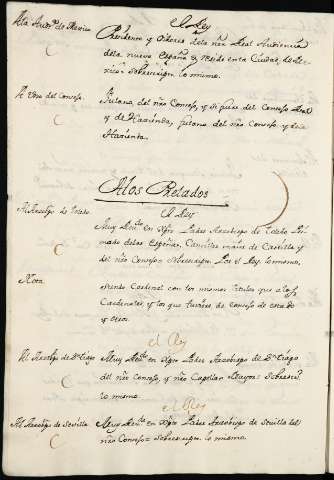 El Rey
Ala Audª de Mexico Presidente y Oidores dela nrã Real Audiencia
dela nueva España q̃ reside enla Ciudad de Mexico
Sobrescripn. lo mismo.
A Uno del Consejo. fulano, del nro Consejo, y si fuere del Consejo Real
y de Hacienda, fulano del nro Consejo y de la
Hacienda.
Alos Prelados
El Rey
Al Arzobpo de Toledo Muy Rdo en Xpto Padre Arzobispo de Toledo Pri
mado delas Españas, Canciller maior de Castilla y
del nro Consejo. Sobrescripn. Por el Rey. lo mismo.
Nota siendo Cardenal con los mismos titulos que a los
Cardenales, y los que tubiere de consejo de estado
y otros.
el Rey
Al Arzobpo de Stiago Muy Rdo en Xpto Padre Arzobispo de Stiago
del nro Consejo, y nro Capellan Mayor. Sobrescrn.
lo mismo
el Rey
Al Arzobpo de Sevilla Muy Rdo en Xpto Padre Arzobispo de Sevilla del
nro Consejo. Sobrescripn. lo mismo.